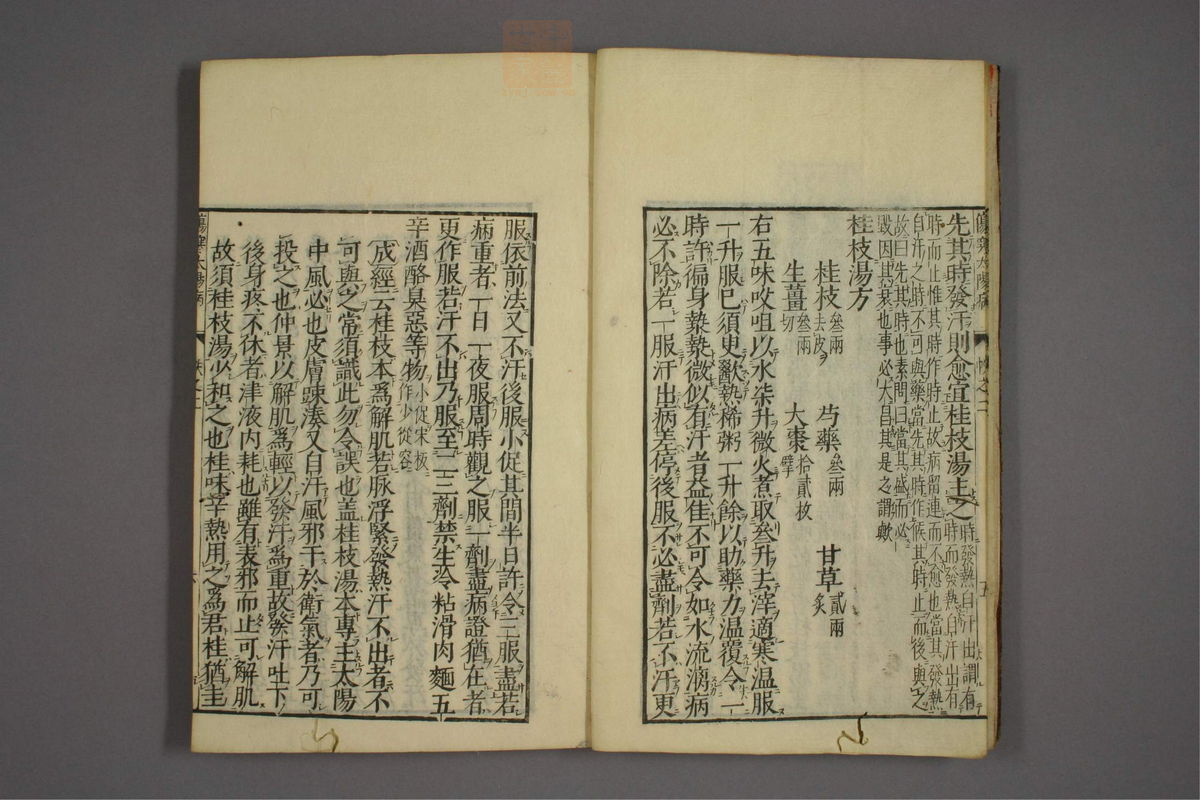 先其時發汗則愈宜桂枝湯主之時發熱自汗出謂有
時而止惟其時作時止故病留連而不愈也當其發熱
自汗之時不可與藥當先其時作候其時止而後與之
故曰先其時也素問曰當其盛而必
毀因其衰也事必大昌其是之謂歟
桂枝湯方
桂枝叄兩去皮 芍藥叄兩 甘草貳兩炙
生薑叄兩切 大棗拾貳枚擘
右五味㕮咀以水柒升微火煮取叄升去滓適寒温服
一升服已須臾歠熱稀粥一升餘以助藥力温覆令一
時許徧身漐漐微似有汗者益佳不可令如水流漓病
必不除若一服汗出病差停後服不必盡劑若不汗更
服依前法又不汗後服小促其間半日許令三服盡若
病重者一日一夜服周時觀之服一劑盡病證猶在者
更作服若汗不出乃服至二三劑禁生冷粘滑肉麵五
辛酒酪臭惡等物小促宋板作少從容
成經云桂枝本爲解肌若脉浮緊發熱汗不出者不
可與之常須識此勿令誤也盖桂枝湯本專主太陽
中風必也皮膚踈湊又自汗風邪干於衛氣者乃可
投之也仲景以解肌爲輕以發汗爲重故發汗吐下
後身疼不休者津液内耗也雖有表邪而止可解肌
故須桂枝湯少和之也桂味辛熱用之爲君桂猶圭